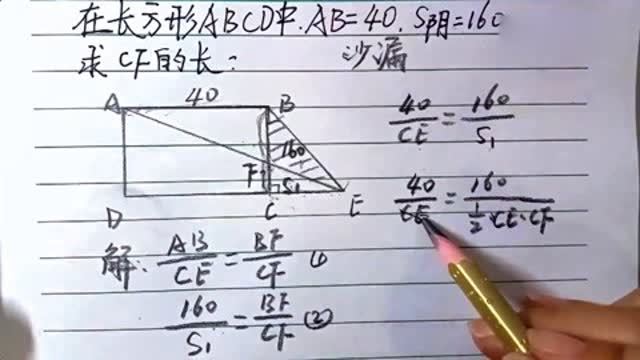 在长方形ABCD中.AB=40.S阴=160
求CF的长:
沙漏
40
A
B
160
F
S₁
D
C
E
40/CE=160/S₁
40/CE=160/(1/2·CE·CF)
解:AB/CE=BF/CF ①
160/S₁=BF/CF ②